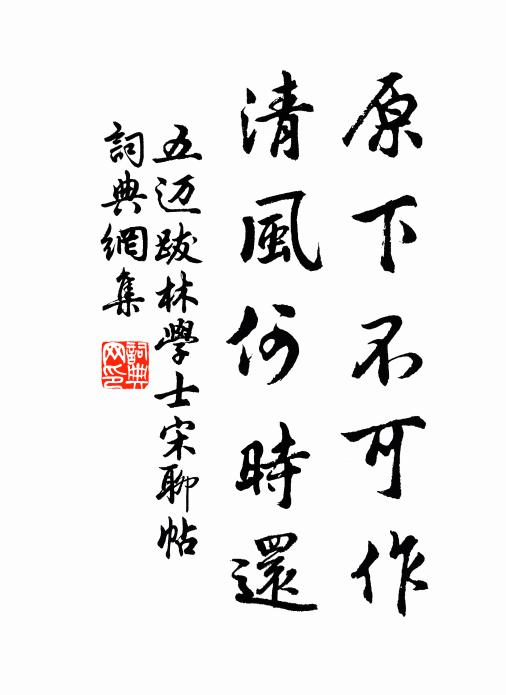 原下不可作
清風何時還
五迈跋林學士宋聊帖
詞典網集
詞典網印